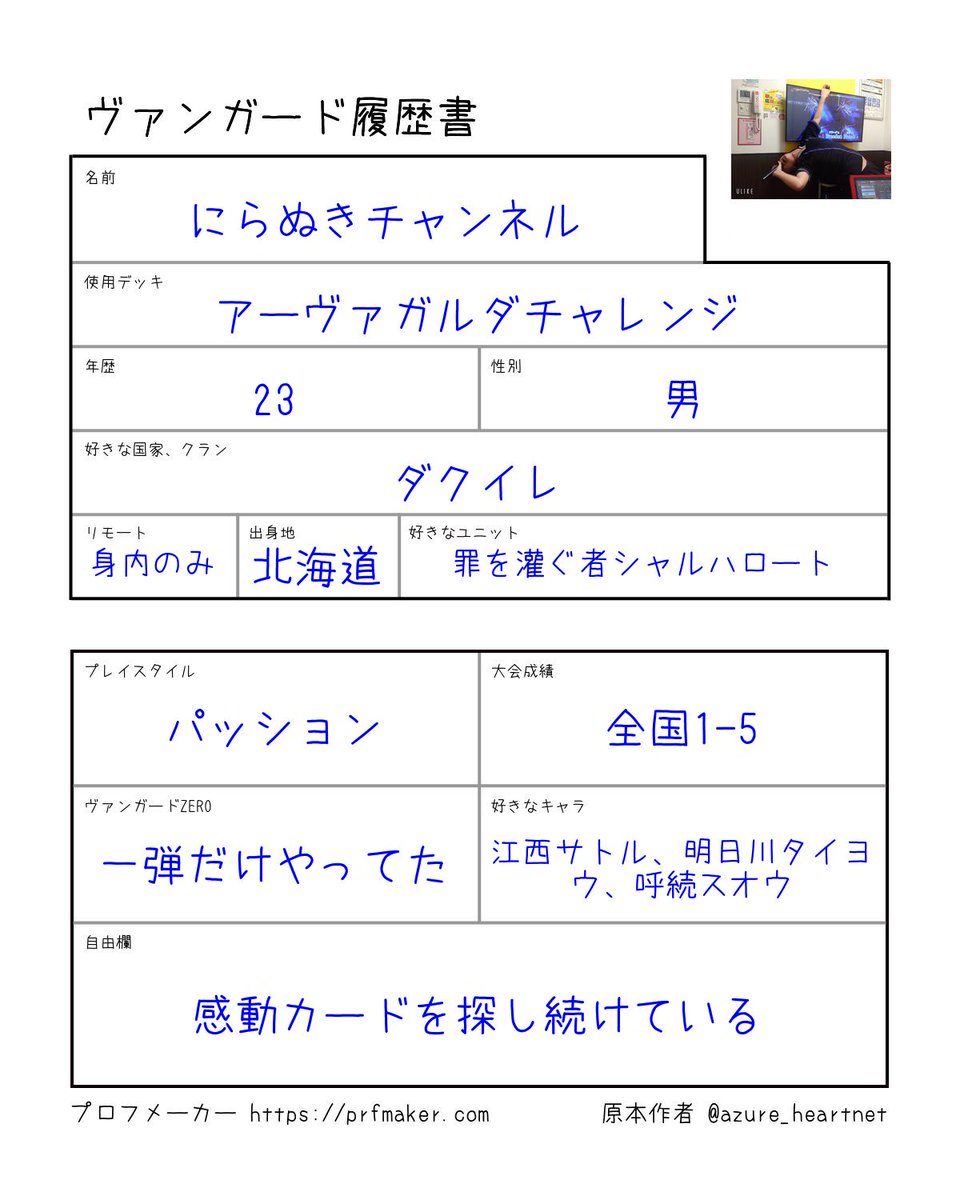 ヴァンガード履歴書
ULIKE
名前
にらぬきチャンネル
使用デッキ
アーヴァガルダチャレンジ
年歴
23
性別
男
好きな国家、クラン
ダクイレ
リモート
身内のみ
出身地
北海道
好きなユニット
罪を灌ぐ者シャルハロート
プレイスタイル
パッション
大会成績
全国1-5
ヴァンガードZERO
一弾だけやってた
好きなキャラ
江西サトル、明日川タイヨ
ウ、呼続スオウ
自由欄
感動カードを探し続けている
プロフメーカー https://prfmaker.com
原本作者 @azure_heartnet